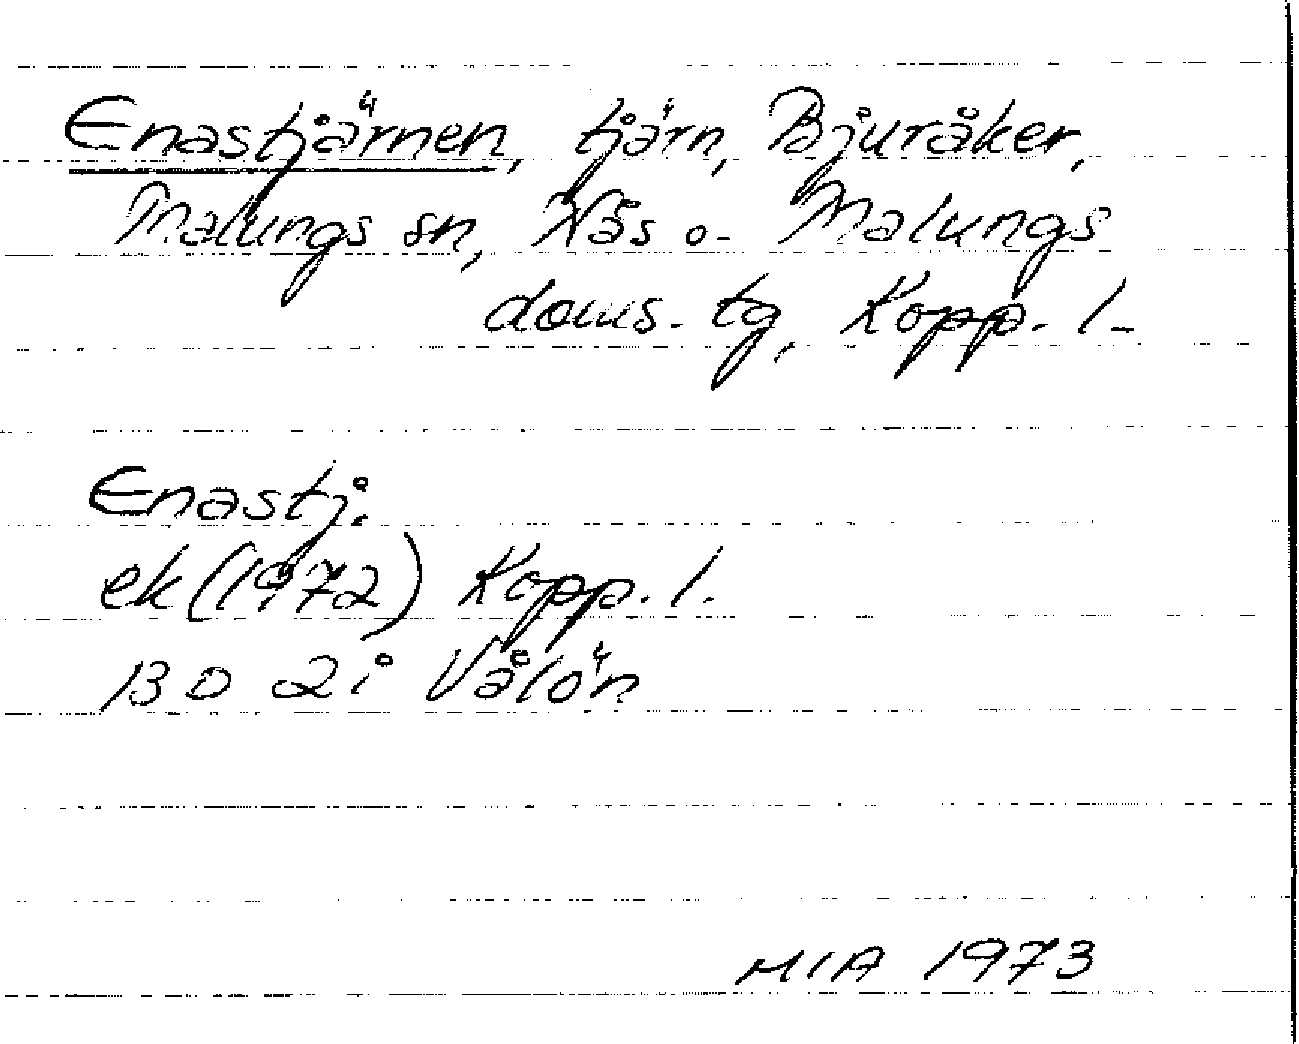 Enastjärnen, tjärn, Bjuråker,
Malungs sn, Näs o. Malungs
doms. tg, Kopp. l.
Enastj.
ek (1972) Kopp. l.
13 D 2i Vålön
MIA 1973